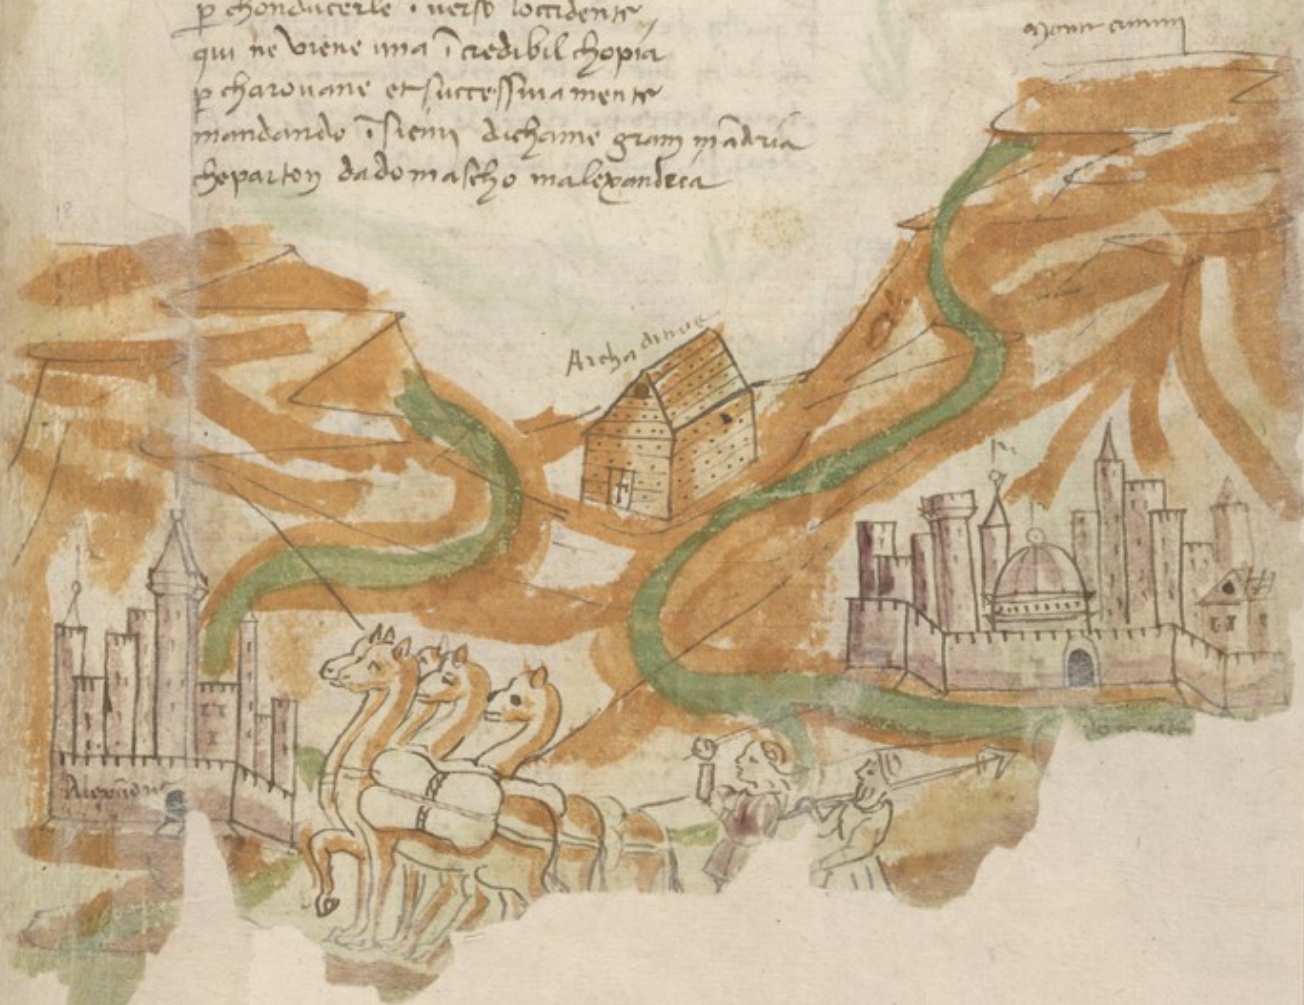 p chonducerle · verso loccidente
qui ne viene una īcredibil chopia
p charouane et successiuamente
mandando īsiemi dichame gram mādria
cheparton dadomascho inalexandria
Monte
Archa dinoe
Alexādria